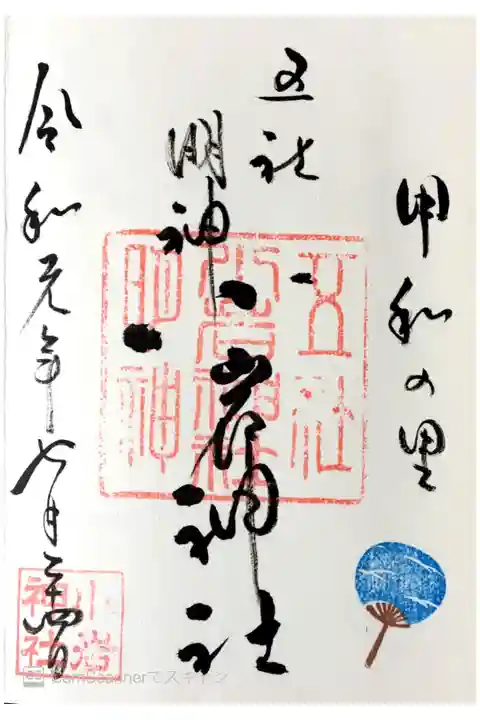 甲和の里
五社
明神
小岩神社
令和元年七月二十四日
五社
小岩神社
明神
小岩
神社
CamScannerでスキャン